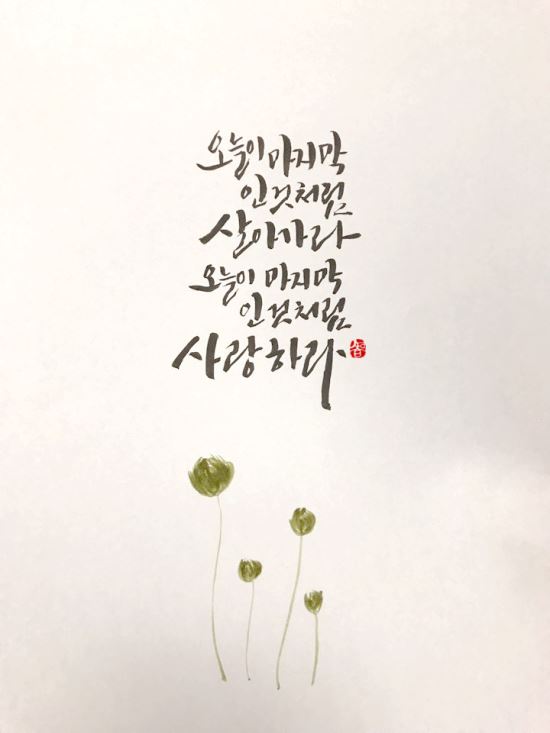 오늘이 마지막
인것처럼
살아가라
오늘이 마지막
인것처럼
사랑하라